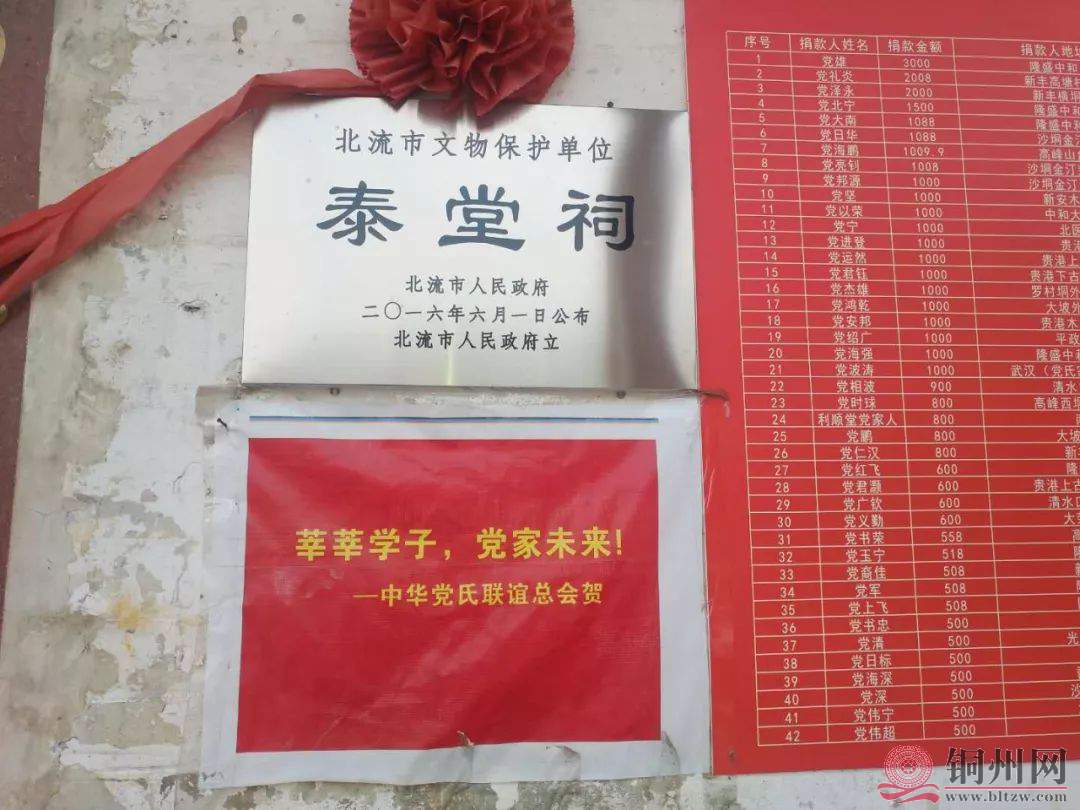 北流市文物保护单位
泰堂祠
北流市人民政府
二〇一六年六月一日公布
北流市人民政府立
莘莘学子，党家未来!
—中华党氏联谊总会贺
序号 捐款人姓名 捐款金额 捐款人地址
1 党雄 3000 隆盛中和
2 党礼炎 2008 新丰高塘
3 党泽永 2000 新丰横垌
4 党北宁 1500 隆盛中和
5 党大南 1088 隆盛中和
6 党日华 1088 沙垌金汀
7 党海鹏 1009.9 高峰山
8 党亮钊 1008 沙垌金汀
9 党邦源 1000 沙垌金汀
10 党坚 1000 新安木
11 党以荣 1000 中和大
12 党宁 1000 北
13 党进登 1000 贵港
14 党运然 1000 贵港上
15 党君钰 1000 贵港下古
16 党杰雄 1000 罗村垌外
17 党鸿乾 1000 大坡外
18 党安邦 1000 贵港木
19 党绍广 1000 平政
20 党海强 1000 隆盛中
21 党波涛 1000 武汉（党氏
22 党相波 900 清水
23 党时球 800 高峰西垌
24 利顺堂党家人 800
25 党鹏 800 大坡
26 党仁汉 800 新
27 党红飞 600 隆
28 党君灏 600 贵港上古
29 党广钦 600 清水口
30 党义勤 600 大
31 党书荣 558 高
32 党玉宁 518 隆
33 党裔佳 508
34 党军 508
35 党上飞 508
36 党书忠 500
37 党清 500 光
38 党日标 500
39 党海深 500
40 党深 500 沙
41 党伟宁 500
42 党伟超 500
铜州网
www.bltzw.com